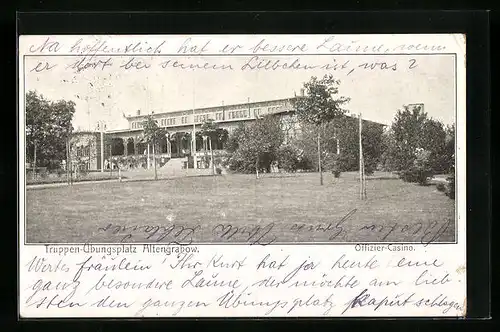 Na hoffentlich hat er bessere Laune, wenn
er dort bei seinem Liebchen ist, was?
Gruss
Truppen-Übungsplatz Altengrabow.
Offizier-Casino.
Wertes Fräulein Ihr Kurt hat ja heute eine
ganz besondere Laune, der möchte am lieb-
sten den ganzen Übungsplatz kaput schlagen